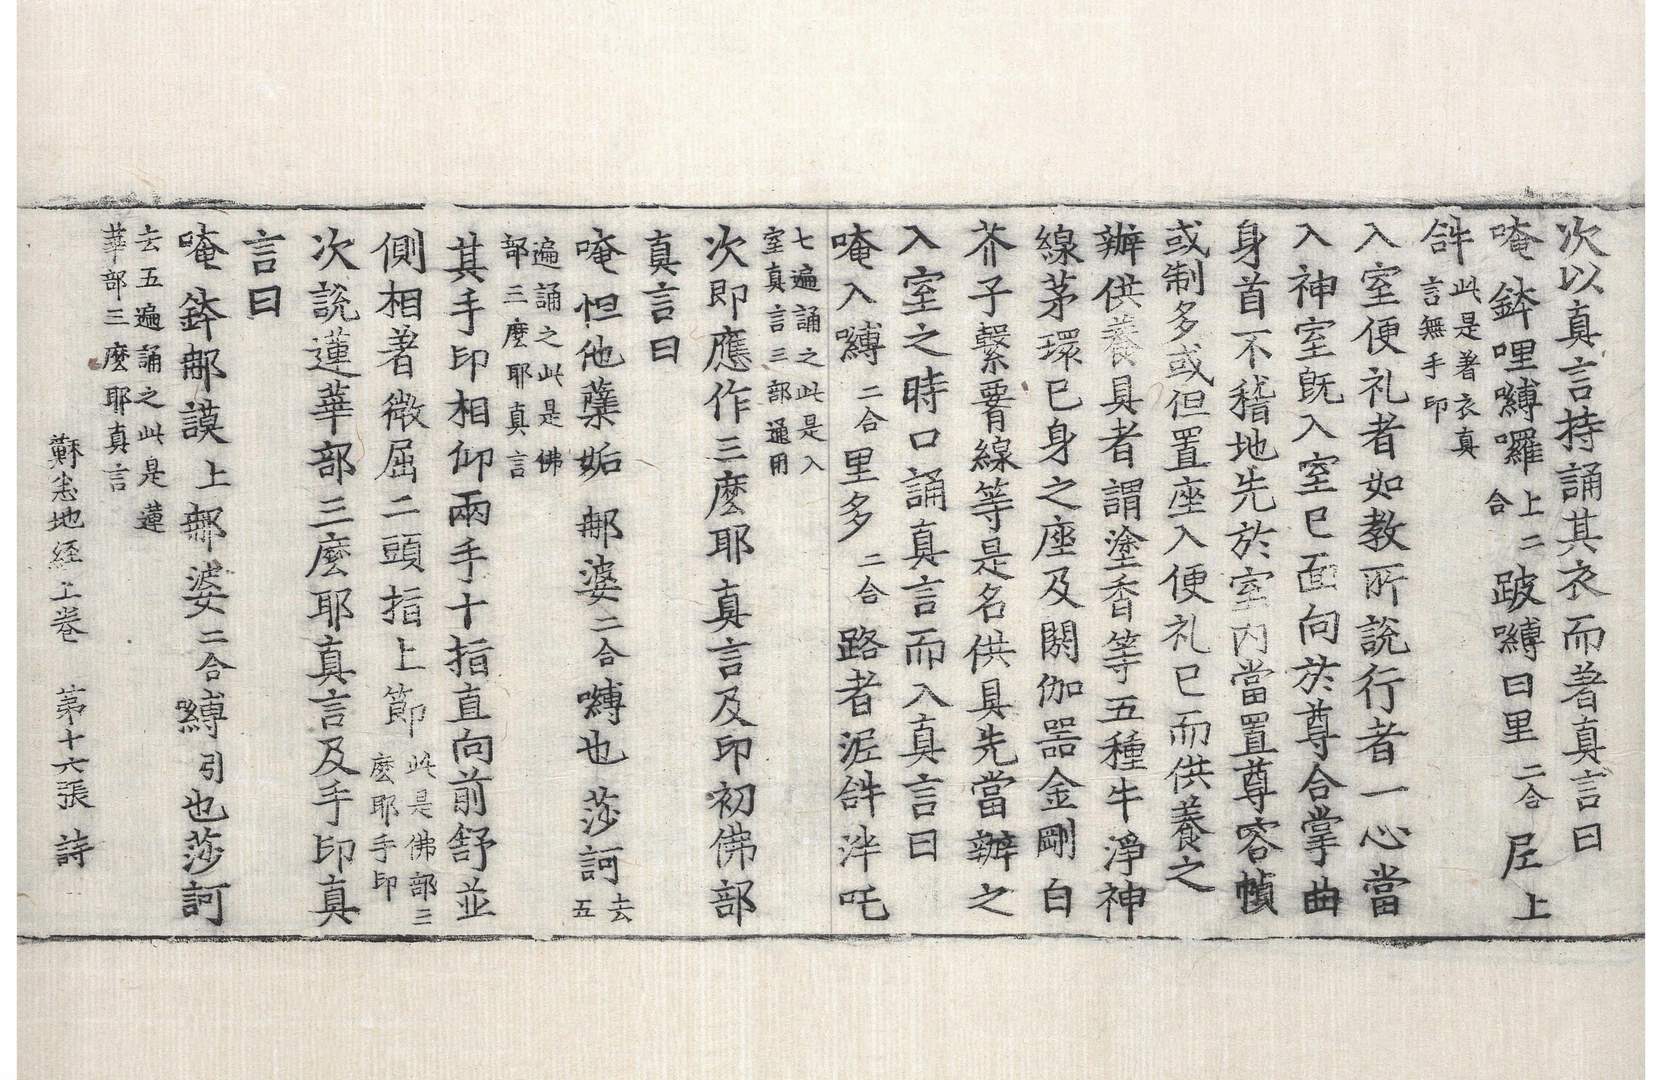 次以真言持誦其衣而著真言曰
唵 鉢哩嚩囉上二合跛嚩曰里二合𡱝上
𤙖此是著衣真言無手印
入室便礼者如教所說行者一心當
入神室旣入室已面向於尊合掌曲
身首不稽地先於室內當置尊容幀
或制多或但置座入便礼已而供養之
辦供養具者謂塗香等五種牛淨神
線茅環已身之座及閼伽器金剛白
芥子繫臂線等是名供具先當辦之
入室之時口誦真言而入真言曰
唵入嚩二合里多二合路者泥𤙖泮吒
七遍誦之此是入室真言三部通用
次即應作三麼耶真言及印初佛部
真言曰
唵怛他蘖妬 郍婆二合嚩也莎訶去五
遍誦之此是佛部三麼耶真言
其手印相仰兩手十指直向前舒並
側相著微屈二頭指上節此是佛部三麼耶手印
次說蓮華部三麼耶真言及手印真
言曰
唵鉢郍謨上郍婆二合嚩引也莎訶
去五遍誦之此是蓮華部三麼耶真言
蘇悉地経上巻 第十六張 詩